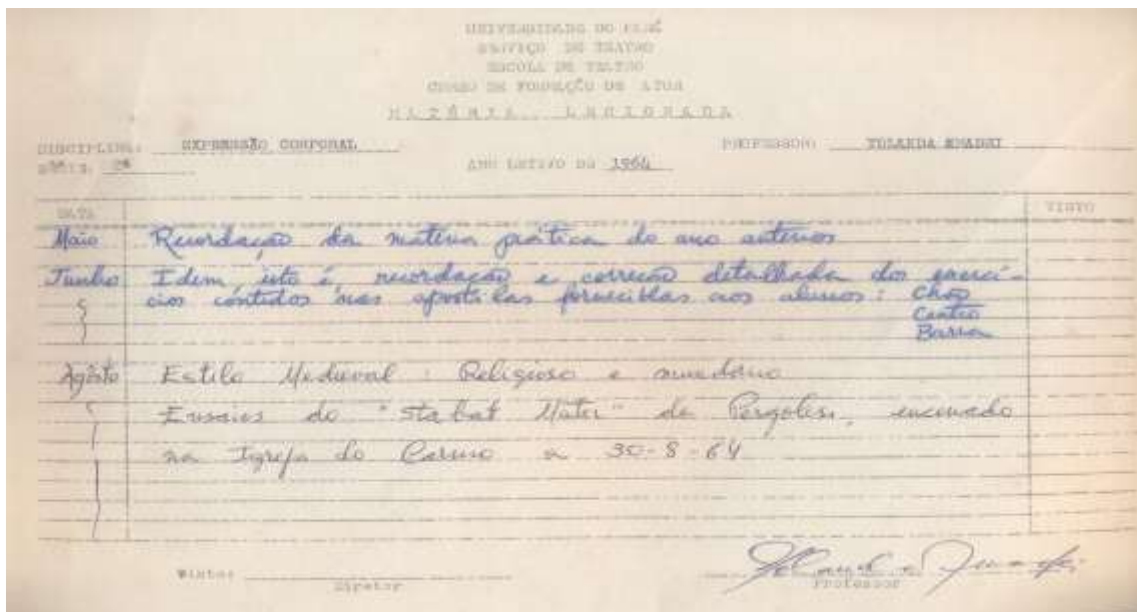 UNIVERSIDADE DO PARÁ
SERVIÇO DE TEATRO
ESCOLA DE TEATRO
CURSO DE FORMAÇÃO DE ATOR
MATÉRIA LECIONADA
DISCIPLINA: EXPRESSÃO CORPORAL PROFESSOR: YOLANDA AMADEI
SÉRIE: 2ª ANO LETIVO DE 1964
DATA VISTO
Maio Recordação da matéria prática do ano anterior
Junho Idem, isto é, recordação e correção detalhada dos exercí-
cios contidos nas apostilas fornecidas aos alunos: Chão
Centro
Barra
Agôsto Estilo Medieval: Religioso e mundano
Ensaios do "Stabat Mater" de Pergolesi, encenado
na Igreja do Carmo a 30-8-64
Visto:
Diretor
Yolanda Amadei
Professor